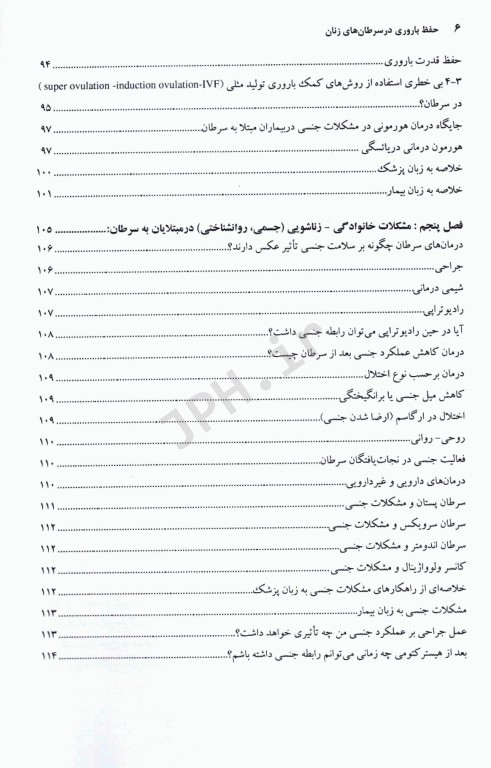 ۶ حفظ باروری در سرطان‌های زنان
حفظ قدرت باروری ..... ۹۴
۴-۳ بی خطری استفاده از روش‌های کمک باروری تولید مثلی (super ovulation -induction ovulation-IVF )
در سرطان؟ ..... ۹۵
جایگاه درمان هورمونی در مشکلات جنسی دربیماران مبتلا به سرطان ..... ۹۷
هورمون درمانی دریائسگی ..... ۹۷
خلاصه به زبان پزشک ..... ۱۰۰
خلاصه به زبان بیمار ..... ۱۰۱
فصل پنجم : مشکلات خانوادگی - زناشویی (جسمی، روانشناختی) درمبتلایان به سرطان: ..... ۱۰۵
درمان‌های سرطان چگونه بر سلامت جنسی تأثیر عکس دارند؟ ..... ۱۰۶
جراحی ..... ۱۰۶
شیمی درمانی ..... ۱۰۷
رادیوتراپی ..... ۱۰۷
آیا در حین رادیوتراپی می‌توان رابطه جنسی داشت؟ ..... ۱۰۸
درمان کاهش عملکرد جنسی بعد از سرطان چیست؟ ..... ۱۰۸
درمان برحسب نوع اختلال ..... ۱۰۹
کاهش میل جنسی یا برانگیختگی ..... ۱۰۹
اختلال در ارگاسم (ارضا شدن جنسی) ..... ۱۰۹
روحی- روانی ..... ۱۱۰
فعالیت جنسی در نجات‌یافتگان سرطان ..... ۱۱۰
درمان‌های دارویی و غیردارویی ..... ۱۱۰
سرطان پستان و مشکلات جنسی ..... ۱۱۱
سرطان سرویکس و مشکلات جنسی ..... ۱۱۲
سرطان اندومتر و مشکلات جنسی ..... ۱۱۲
کانسر ولوواژینال و مشکلات جنسی ..... ۱۱۲
خلاصه‌ای از راهکارهای مشکلات جنسی به زبان پزشک ..... ۱۱۲
مشکلات جنسی به زبان بیمار ..... ۱۱۳
عمل جراحی بر عملکرد جنسی من چه تأثیری خواهد داشت؟ ..... ۱۱۳
بعد از هیسترکتومی چه زمانی می‌توانم رابطه جنسی داشته باشم؟ ..... ۱۱۴
JPH.ir